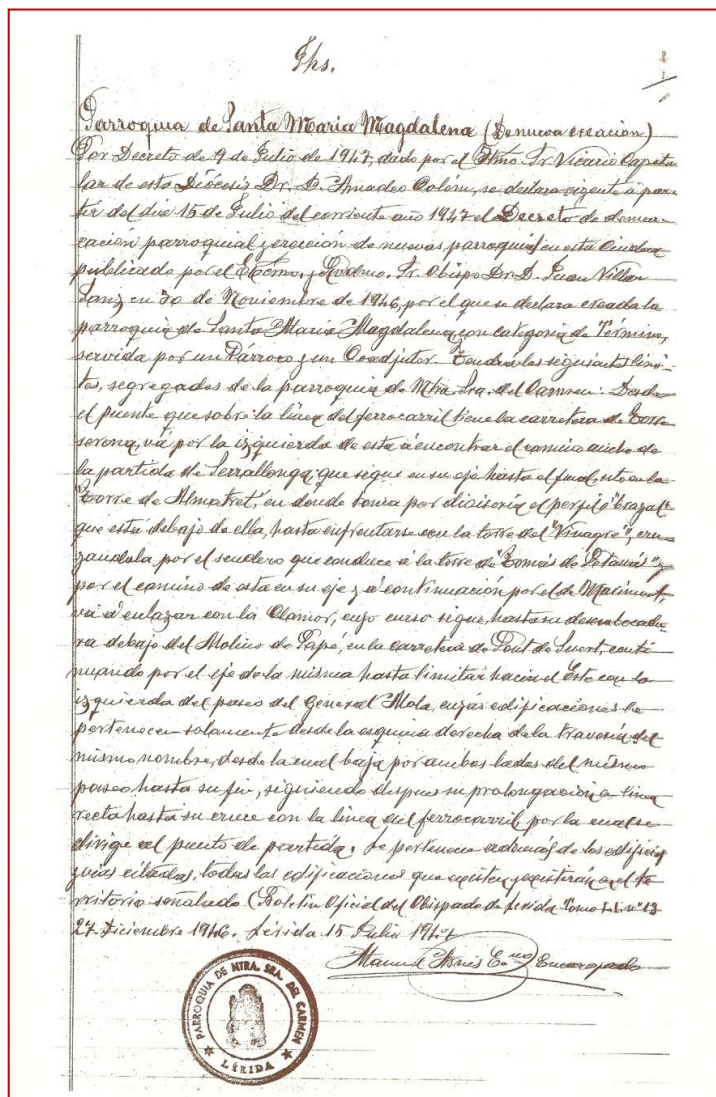 Jhs.
Parroquia de Santa Maria Magdalena (De nueva creación)
Por Decreto de 9 de Julio de 1947, dado por el Iltmo. Sr. Vicario Capitu-
lar de esta Diócesis Dr. D. Amadeo Colóm, se declara vigente á par-
tir del dia 15 de Julio del corriente año 1947 el Decreto de demar-
cación parroquial y creación de nuevas parroquias en esta Ciudad
publicado por el Excmo. y Rvdmo. Sr. Obispo Dr. D. Juan Villar
Sanz en 30 de Noviembre de 1946, por el que se declara creada la
parroquia de Santa Maria Magdalena, con categoria de Término,
servida por un Párroco y un Coadjutor. Tendrá los seguientes limi-
tes, segregados de la parroquia de Ntra. Sra. del Carmen: Desde
el puente que sobre la linea del ferrocarril tiene la carretera de Torre-
serona, vá por la izquierda de esta á encontrar el camino ancho de
la partida de Serrallonga, que segue en su eje hasta el final, sito en la
"Torre de Almatret", en donde toma por divisoria el perfil ó "brazal"
que está debajo de ella, hasta enfrentarse con la torre del "Vinagre", cru-
zandola por el sendero que conduce á la torre de "Tomás de
por el camino de esta en su eje y á continuación por el de
vá á enlazar con la Clamor, cuyo curso sigue, hasta su desemboca­du-
ra debajo del Molino de Papé, en la carretera de Pont de Suert, conti-
nuando por el eje de la misma hasta limitar hacia el Este con la
izquierda del paseo del General Mola, cuyas edificaciones le
pertenecen solamente desde la esquina derecha de la travesia del
mismo nombre, desde la cual baja por ambos lados del mismo
paseo hasta su fin, siguiendo despues su prolongación en linea
recta hasta su cruce con la linea del ferrocarril, por la cual se
dirige al punto de partida. Le pertenecen además de los edificios
citadas, todas las edificaciones que existen y existirán en el te-
rritorio señalado (Boletin Oficial del Obispado de Lerida Tomo LI nº 13
27 Diciembre 1946. Lérida 15 Julio 1947
Manuel Ecno Encargado
PARROQUIA DE NTRA. SRA. DEL CARMEN
LÉRIDA